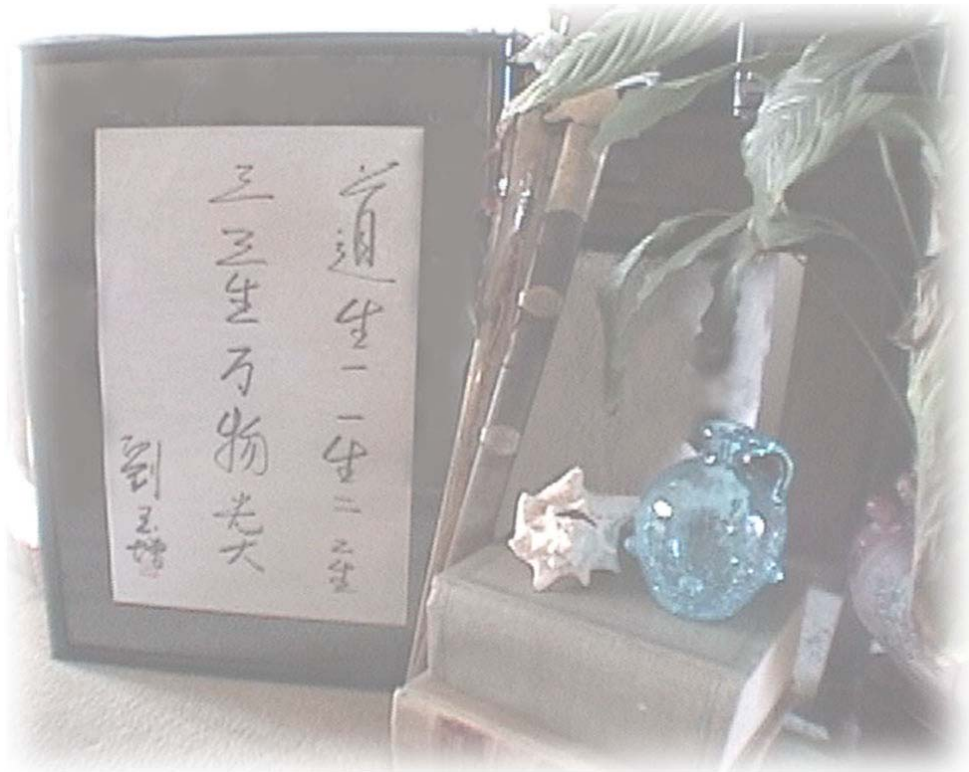 道生一一生二二生
三三生万物光大
劉玉增